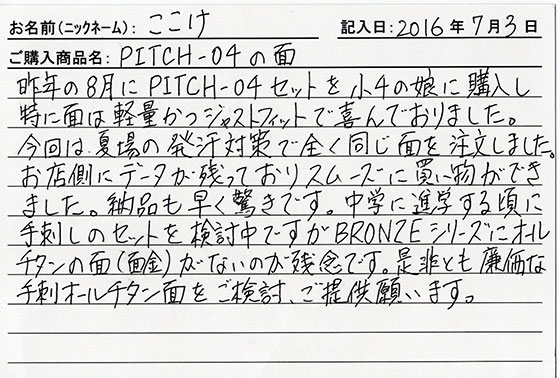 お名前(ニックネーム): ここけ 記入日: 2016年7月3日
ご購入商品名: PITCH-04の面
昨年の8月にPITCH-04セットを小4の娘に購入し
特に面は軽量かつジャストフィットで喜んでおりました。
今回は、夏場の発汗対策で全く同じ面を注文しました。
お店側にデータが残っておりスムーズに買い物ができ
ました。納品も早く驚きです。中学に進学する頃に
手刺しのセットを検討中ですがBRONZEシリーズにオール
チタンの面(面金)がないのが残念です。是非とも廉価な
手刺オールチタン面をご検討、ご提供願います。